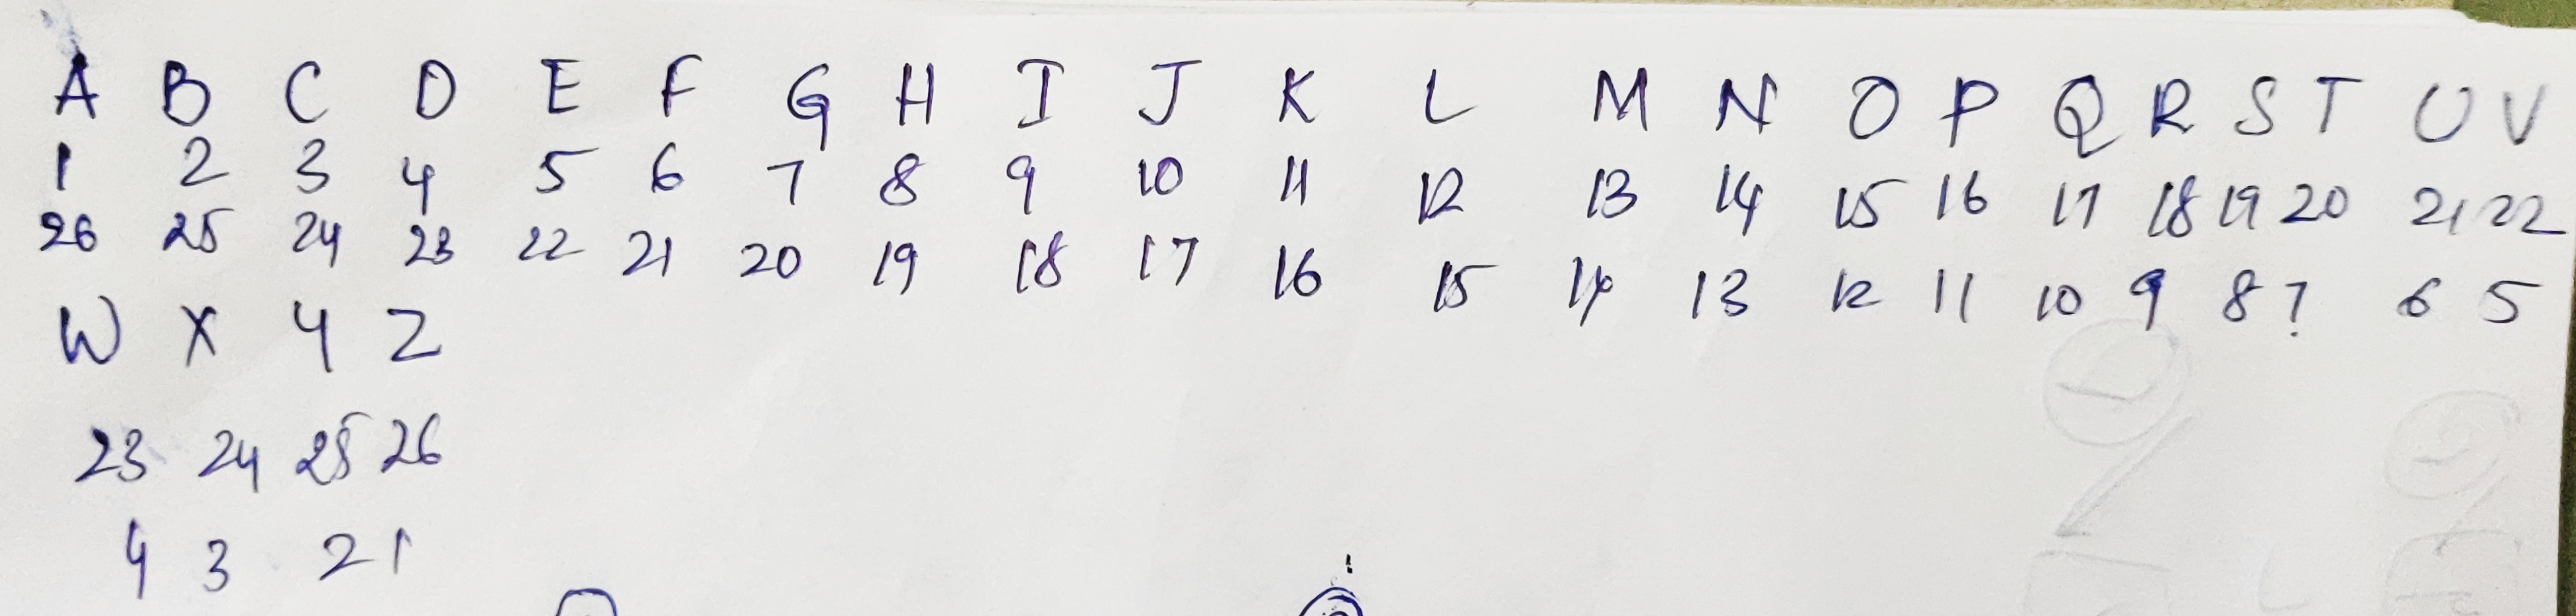 A B C D E F G H I J K L M N O P Q R S T U V
1 2 3 4 5 6 7 8 9 10 11 12 13 14 15 16 17 18 19 20 21 22
26 25 24 23 22 21 20 19 18 17 16 15 14 13 12 11 10 9 8 7 6 5
W X Y Z
23 24 25 26
4 3 2 1